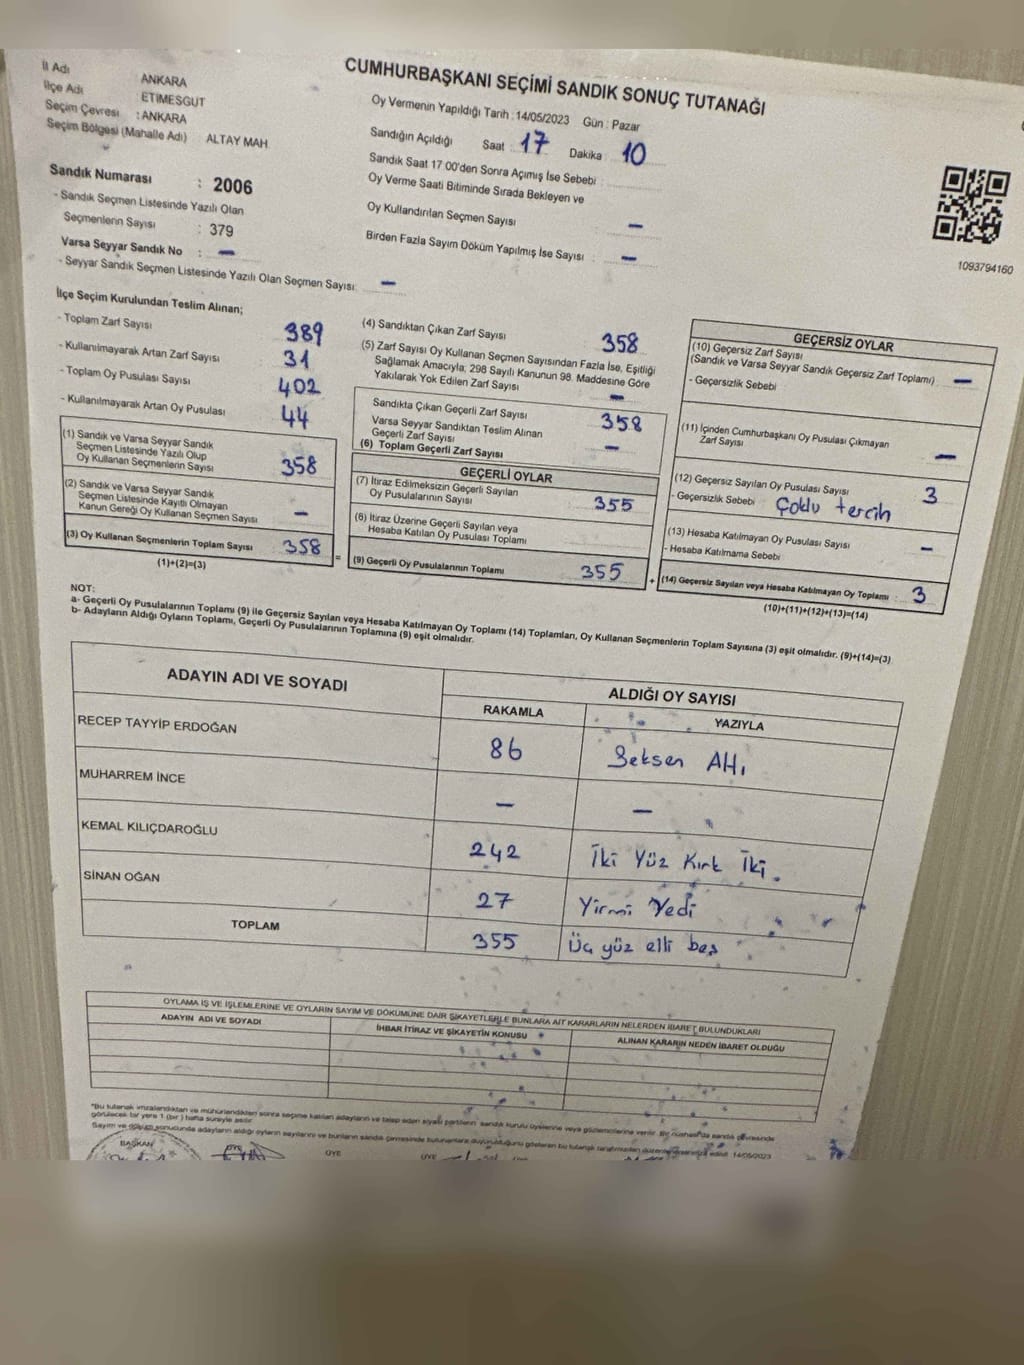 CUMHURBAŞKANI SEÇİMİ SANDIK SONUÇ TUTANAĞI
İl Adı ANKARA
İlçe Adı ETİMESGUT
Seçim Çevresi : ANKARA
Seçim Bölgesi (Mahalle Adı) ALTAY MAH
Oy Vermenin Yapıldığı Tarih : 14/05/2023 Gün : Pazar
Sandığın Açıldığı Saat : 17 Dakika : 10
Sandık Saat 17:00'den Sonra Açımış İse Sebebi :
Oy Verme Saati Bitiminde Sırada Bekleyen ve
Oy Kullandırılan Seçmen Sayısı : –
Birden Fazla Sayım Döküm Yapılmış İse Sayısı : –
1093794160
Sandık Numarası : 2006
- Sandık Seçmen Listesinde Yazılı Olan
Seçmenlerin Sayısı : 379
Varsa Seyyar Sandık No : –
- Seyyar Sandık Seçmen Listesinde Yazılı Olan Seçmen Sayısı: –
İlçe Seçim Kurulundan Teslim Alınan;
- Toplam Zarf Sayısı 389
- Kullanılmayarak Artan Zarf Sayısı 31
- Toplam Oy Pusulası Sayısı 402
- Kullanılmayarak Artan Oy Pusulası 44
(1) Sandık ve Varsa Seyyar Sandık
Seçmen Listesinde Yazılı Olup
Oy Kullanan Seçmenlerin Sayısı 358
(2) Sandık ve Varsa Seyyar Sandık
Seçmen Listesinde Kayıtlı Olmayan
Kanun Gereği Oy Kullanan Seçmen Sayısı –
(3) Oy Kullanan Seçmenlerin Toplam Sayısı 358
(1)+(2)=(3)
=
(4) Sandıktan Çıkan Zarf Sayısı 358
(5) Zarf Sayısı Oy Kullanan Seçmen Sayısından Fazla İse, Eşitliği
Sağlamak Amacıyla; 298 Sayılı Kanunun 98. Maddesine Göre
Yakılarak Yok Edilen Zarf Sayısı –
Sandıkta Çıkan Geçerli Zarf Sayısı 358
Varsa Seyyar Sandıktan Teslim Alınan
Geçerli Zarf Sayısı –
(6) Toplam Geçerli Zarf Sayısı
GEÇERLİ OYLAR
(7) İtiraz Edilmeksizin Geçerli Sayılan
Oy Pusulalarının Sayısı 355
(8) İtiraz Üzerine Geçerli Sayılan veya
Hesaba Katılan Oy Pusulası Toplamı
(9) Geçerli Oy Pusulalarının Toplamı 355
+
GEÇERSİZ OYLAR
(10) Geçersiz Zarf Sayısı
(Sandık ve Varsa Seyyar Sandık Geçersiz Zarf Toplamı) –
- Geçersizlik Sebebi
(11) İçinden Cumhurbaşkanı Oy Pusulası Çıkmayan
Zarf Sayısı –
(12) Geçersiz Sayılan Oy Pusulası Sayısı 3
- Geçersizlik Sebebi Çoklu tercih
(13) Hesaba Katılmayan Oy Pusulası Sayısı –
- Hesaba Katılmama Sebebi
(14) Geçersiz Sayılan veya Hesaba Katılmayan Oy Toplamı : 3
(10)+(11)+(12)+(13)=(14)
NOT:
a- Geçerli Oy Pusulalarının Toplamı (9) ile Geçersiz Sayılan veya Hesaba Katılmayan Oy Toplamı (14) Toplamları, Oy Kullanan Seçmenlerin Toplam Sayısına (3) eşit olmalıdır. (9)+(14)=(3)
b- Adayların Aldığı Oyların Toplamı, Geçerli Oy Pusulalarının Toplamına (9) eşit olmalıdır.
ADAYIN ADI VE SOYADI ALDIĞI OY SAYISI
RAKAMLA YAZIYLA
RECEP TAYYİP ERDOĞAN 86 Seksen Altı
MUHARREM İNCE – –
KEMAL KILIÇDAROĞLU 242 İki Yüz Kırk İki.
SİNAN OĞAN 27 Yirmi Yedi
TOPLAM 355 Üç yüz elli beş
OYLAMA İŞ VE İŞLEMLERİNE VE OYLARIN SAYIM VE DÖKÜMÜNE DAİR ŞİKAYETLERLE BUNLARA AİT KARARLARIN NELERDEN İBARET BULUNDUKLARI
ADAYIN ADI VE SOYADI İHBAR İTİRAZ VE ŞİKAYETİN KONUSU ALINAN KARARIN NEDEN İBARET OLDUĞU
*Bu tutanak imzalandıktan ve mühürlendikten sonra seçime katılan adayların ve talep eden siyasi partilerin sandık kurulu üyelerine veya gözlemcilerine verilir. Bir nüshası da sandık çevresinde
görülecek bir yere 1 (bir) hafta süreyle asılır.
Sayım ve döküm sonucunda adayların aldığı oyların sayılarını ve bunların sandık çevresinde bulunanlara duyurulduğunu gösteren bu tutanak tarafımızdan düzenlenerek imza edildi 14/05/2023
BAŞKAN ÜYE ÜYE